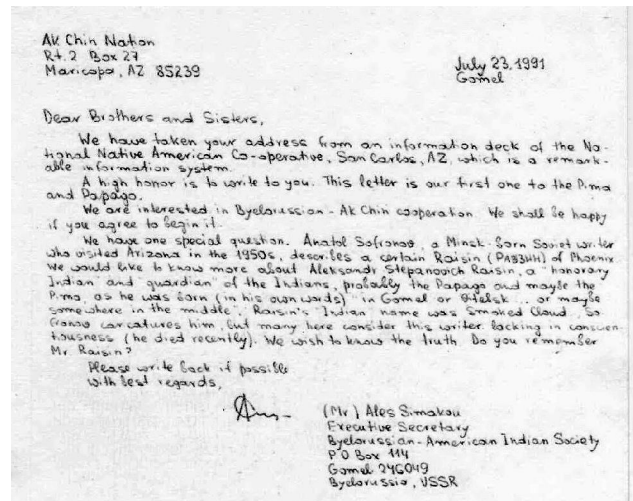 Ak Chin Nation
Rt. 2 Box 27
Maricopa, AZ 85239
July 23, 1991
Gomel
Dear Brothers and Sisters,
We have taken your address from an information deck of the Na-
tional Native American Co-operative, San Carlos, AZ, which is a remark-
able information system.
A high honor is to write to you. This letter is our first one to the Pima
and Papago.
We are interested in Byelorussian - Ak Chin cooperation. We shall be happy
if you agree to begin it.
We have one special question. Anatol Sofronov, a Minsk-born Soviet writer
who visited Arizona in the 1950s, describes a certain Raisin (РАЗЗИН) of Phoenix
We would like to know more about Aleksandr Stepanovich Raisin, a "honorary
Indian" and "guardian" of the Indians, probably the Papago and maybe the
Pima, as he was born (in his own words) "in Gomel or ... or maybe
somewhere in the middle". Raisin's Indian name was Smoked Cloud. So
fronov caricatures him, but many here consider this writer lacking in conscien
tiousness (he died recently). We wish to know the truth. Do you remember
Mr Raisin?
Please write back if possible
With best regards,
(Mr) Ales Simakou
Executive Secretary
Byelorussian-American Indian Society
P O Box 114
Gomel 246049
Byelorussia, USSR